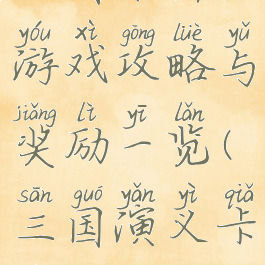 yóu xì gōng lüè yǔ
游戏攻略与
jiǎng lì yī lǎn
奖励一览(
sān guó yǎn yì qiǎ
三国演义卡